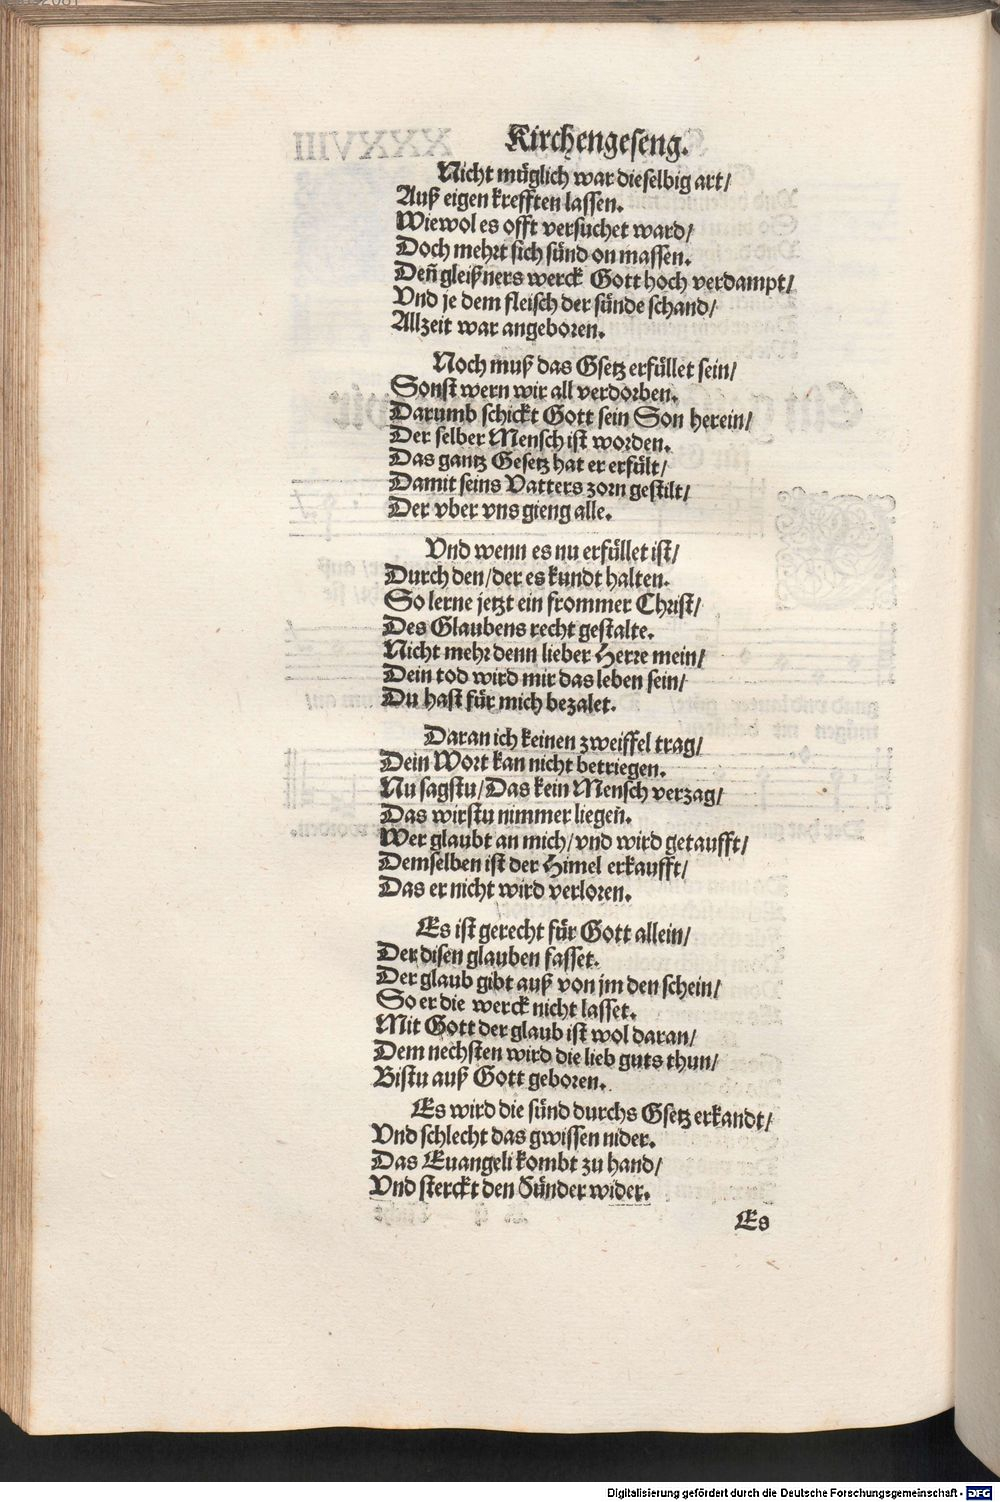 Kirchengeseng.
Nicht müglich war dieselbig art/
Auß eigen krefften lassen.
Wiewol es offt versuchet ward/
Doch mehrt sich sünd on massen.
Deñ gleißners werck Gott hoch verdampt/
Vnd je dem fleisch der sünde schand/
Allzeit war angeboren.
Noch muß das Gsetz erfüllet sein/
Sonst wern wir all verdorben.
Darumb schickt Gott sein Son herein/
Der selber Mensch ist worden.
Das gantz Gesetz hat er erfült/
Damit seins Vatters zorn gestilt/
Der vber vns gieng alle.
Vnd wenn es nu erfüllet ist/
Durch den/der es kundt halten.
So lerne jetzt ein frommer Christ/
Des Glaubens recht gestalte.
Nicht mehr denn lieber Herre mein/
Dein tod wird mir das leben sein/
Du hast für mich bezalet.
Daran ich keinen zweiffel trag/
Dein Wort kan nicht betriegen.
Nu sagstu/Das kein Mensch verzag/
Das wirstu nimmer liegeñ.
Wer glaubt an mich/vnd wird getaufft/
Demselben ist der Himel erkaufft/
Das er nicht wird verloren.
Es ist gerecht für Gott allein/
Der disen glauben fasset.
Der glaub gibt auß von jm den schein/
So er die werck nicht lasset.
Mit Gott der glaub ist wol daran/
Dem nechsten wird die lieb guts thun/
Bistu auß Gott geboren.
Es wird die sünd durchs Gsetz erkandt/
Vnd schlecht das gwissen nider.
Das Euangeli kombt zu hand/
Vnd sterckt den Sünder wider.
Es
Digitalisierung gefördert durch die Deutsche Forschungsgemeinschaft - DFG